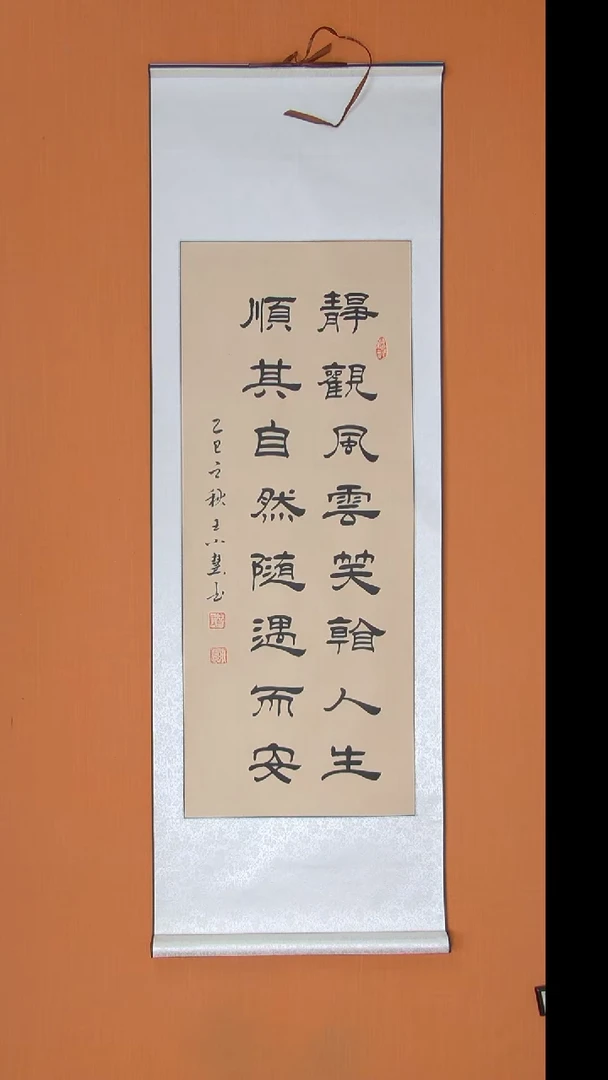 靜觀風雲笑看人生
順其自然隨遇而安
乙巳之秋王小慧书